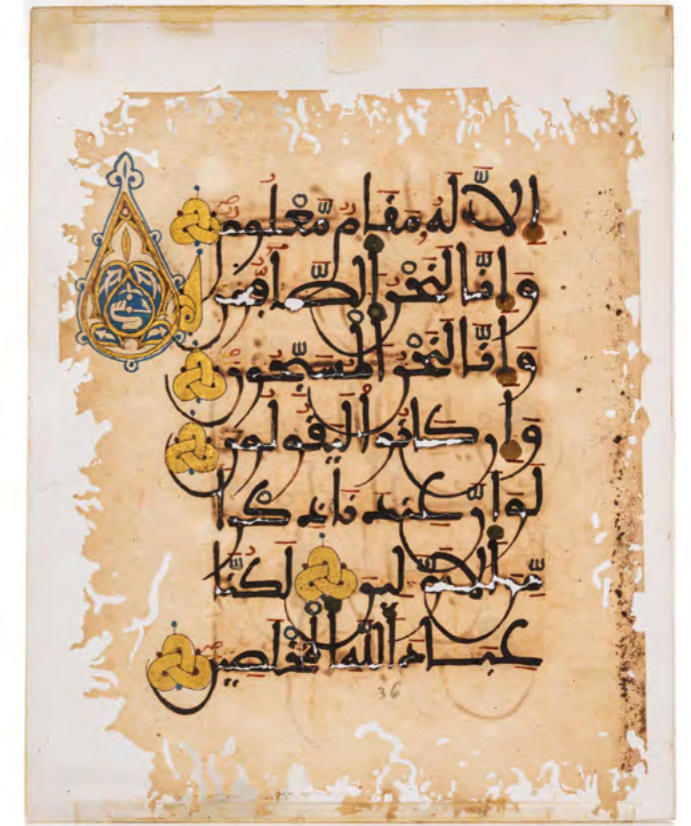 إِلَّا لَهُ مَقَامٌ مَّعْلُومٌ
وَإِنَّا لَنَحْنُ الصَّافُّونَ
وَإِنَّا لَنَحْنُ الْمُسَبِّحُونَ
وَإِن كَانُوا لَيَقُولُونَ
لَوْ أَنَّ عِندَنَا ذِكْرًا
مِّنَ الْأَوَّلِينَ لَكُنَّا
عِبَادَ اللَّهِ الْمُخْلَصِينَ
36